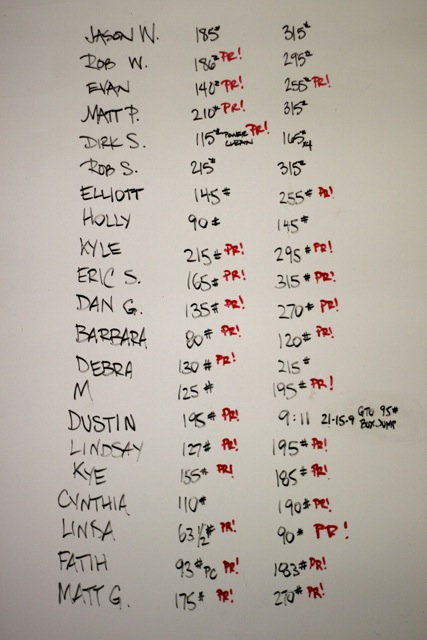 JASON W. 185# 315#
ROB W. 186# PR! 295#
EVAN 140# PR! 255# PR!
MATT P. 210# PR! 315#
DIRK S. 115# POWER CLEAN PR! 165# x4
ROB S. 215# 315#
ELLIOTT 145# 255# PR!
HOLLY 90# 145#
KYLE 215# PR! 295# PR!
ERIC S. 165# PR! 315# PR!
DAN G. 135# PR! 270# PR!
BARBARA 80# PR! 120# PR!
DEBRA 130# PR! 215#
M 125# 195# PR!
DUSTIN 195# PR! 9:11 21-15-9 GTO 95# BOX JUMP
LINDSAY 127# PR! 195# PR!
KYE 155# PR! 185# PR!
CYNTHIA 110# 190# PR!
LINDA 63 1/2# PR! 90# PR!
FATIH 93# PC PR! 183# PR!
MATT G. 175# PR! 270# PR!